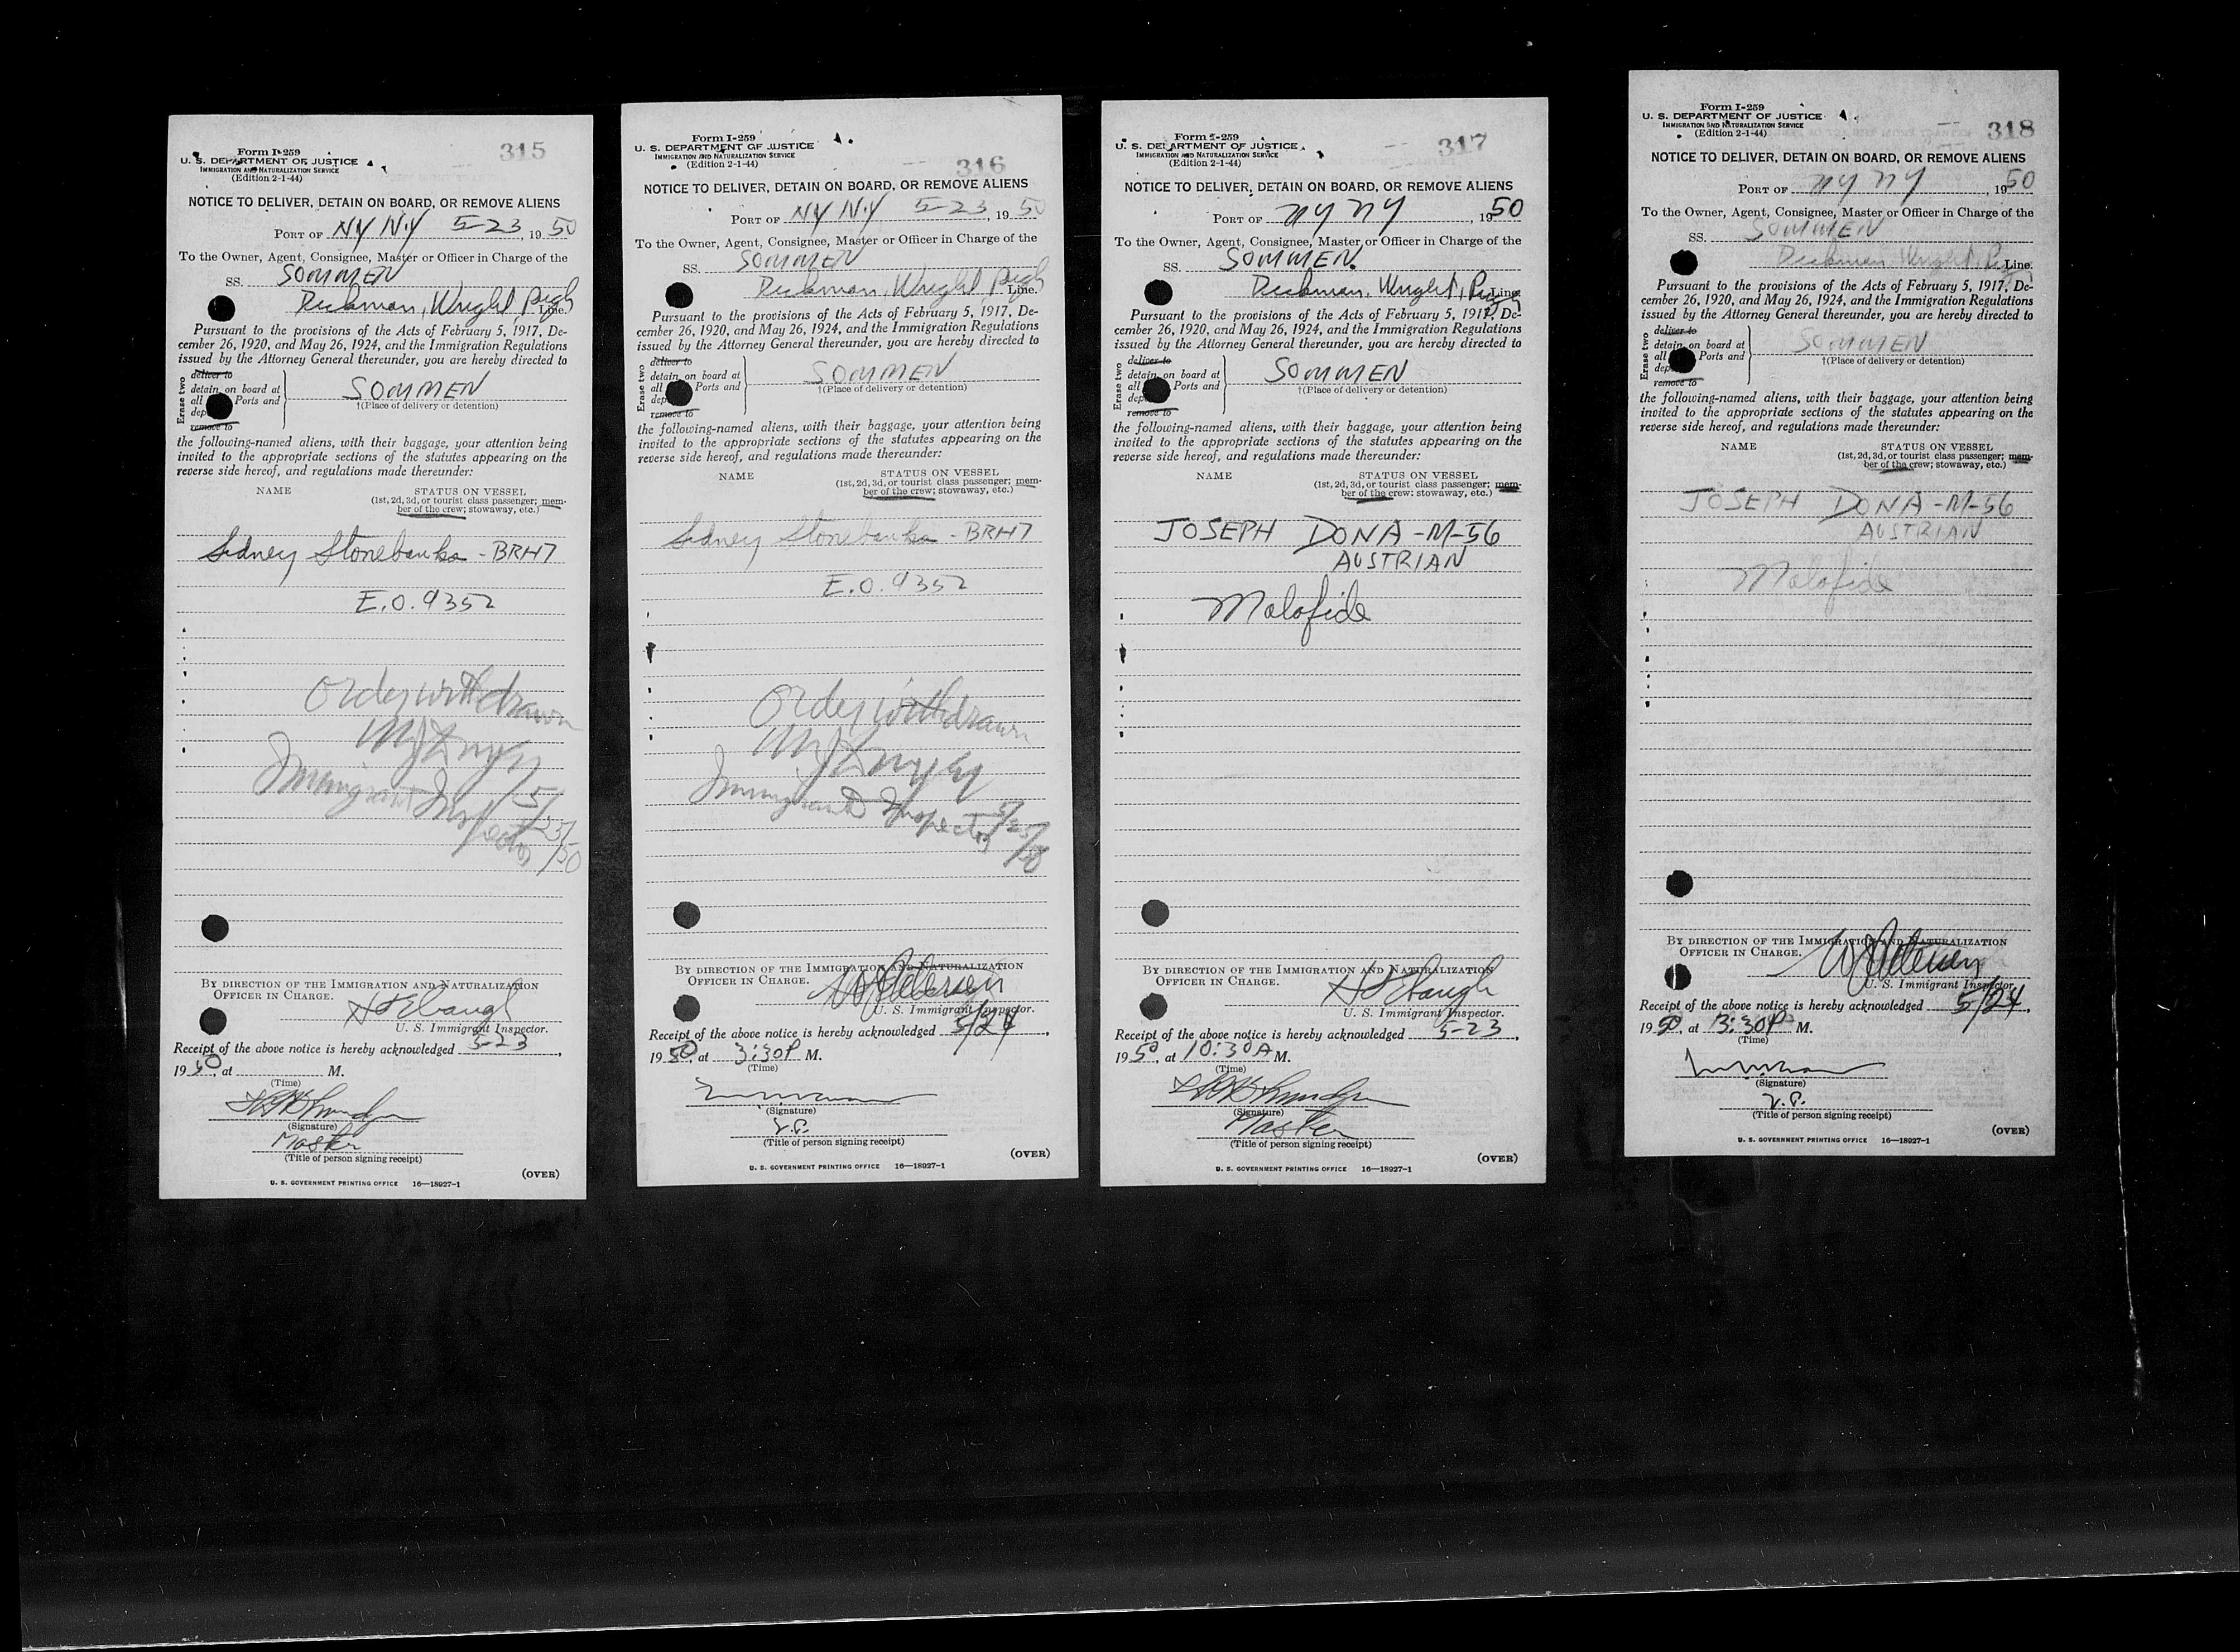 315
Form I-259
U. S. DEPARTMENT OF JUSTICE
IMMIGRATION AND NATURALIZATION SERVICE
(Edition 2-1-44)
NOTICE TO DELIVER, DETAIN ON BOARD, OR REMOVE ALIENS
PORT OF NY NY 5-23, 1950
To the Owner, Agent, Consignee, Master or Officer in Charge of the
SS. SOMMEN
Dickman, Wright, Pugh Line.
Pursuant to the provisions of the Acts of February 5, 1917, De-
cember 26, 1920, and May 26, 1924, and the Immigration Regulations
issued by the Attorney General thereunder, you are hereby directed to
Erase two
deliver to
detain on board at
all Ports and
dep
remove to
SOMMEN
†(Place of delivery or detention)
the following-named aliens, with their baggage, your attention being
invited to the appropriate sections of the statutes appearing on the
reverse side hereof, and regulations made thereunder:
NAME STATUS ON VESSEL
(1st, 2d, 3d, or tourist class passenger; mem-
ber of the crew; stowaway, etc.)
Sidney Stonebanks - BRH7
E.O. 9352
Order withdrawn
Immigrant Inspector 5/25/50
BY DIRECTION OF THE IMMIGRATION AND NATURALIZATION
OFFICER IN CHARGE.
U. S. Immigrant Inspector.
Receipt of the above notice is hereby acknowledged 5-23,
1950, at M.
(Time)
(Signature)
Master
(Title of person signing receipt)
(OVER)
U. S. GOVERNMENT PRINTING OFFICE 16—18927-1
316
Form I-259
U. S. DEPARTMENT OF JUSTICE
IMMIGRATION AND NATURALIZATION SERVICE
(Edition 2-1-44)
NOTICE TO DELIVER, DETAIN ON BOARD, OR REMOVE ALIENS
PORT OF NY NY 5-23, 1950
To the Owner, Agent, Consignee, Master or Officer in Charge of the
SS. SOMMEN
Dickman, Wright, Pugh Line.
Pursuant to the provisions of the Acts of February 5, 1917, De-
cember 26, 1920, and May 26, 1924, and the Immigration Regulations
issued by the Attorney General thereunder, you are hereby directed to
Erase two
deliver to
detain on board at
all Ports and
dep
remove to
SOMMEN
†(Place of delivery or detention)
the following-named aliens, with their baggage, your attention being
invited to the appropriate sections of the statutes appearing on the
reverse side hereof, and regulations made thereunder:
NAME STATUS ON VESSEL
(1st, 2d, 3d, or tourist class passenger; mem-
ber of the crew; stowaway, etc.)
Sidney Stonebanks - BRH7
E.O. 9352
Order withdrawn
Immigrant Inspector 5/25/50
BY DIRECTION OF THE IMMIGRATION AND NATURALIZATION
OFFICER IN CHARGE.
U. S. Immigrant Inspector.
Receipt of the above notice is hereby acknowledged 5/24,
1950, at 3:30P M.
(Time)
(Signature)
V.P.
(Title of person signing receipt)
(OVER)
U. S. GOVERNMENT PRINTING OFFICE 16—18927-1
317
Form I-259
U. S. DEPARTMENT OF JUSTICE
IMMIGRATION AND NATURALIZATION SERVICE
(Edition 2-1-44)
NOTICE TO DELIVER, DETAIN ON BOARD, OR REMOVE ALIENS
PORT OF NY NY, 1950
To the Owner, Agent, Consignee, Master or Officer in Charge of the
SS. SOMMEN
Dickman, Wright, Pugh Line.
Pursuant to the provisions of the Acts of February 5, 1917, De-
cember 26, 1920, and May 26, 1924, and the Immigration Regulations
issued by the Attorney General thereunder, you are hereby directed to
Erase two
deliver to
detain on board at
all Ports and
dep
remove to
SOMMEN
†(Place of delivery or detention)
the following-named aliens, with their baggage, your attention being
invited to the appropriate sections of the statutes appearing on the
reverse side hereof, and regulations made thereunder:
NAME STATUS ON VESSEL
(1st, 2d, 3d, or tourist class passenger; mem-
ber of the crew; stowaway, etc.)
JOSEPH DONA - M-56
AUSTRIAN
Malafide
BY DIRECTION OF THE IMMIGRATION AND NATURALIZATION
OFFICER IN CHARGE.
U. S. Immigrant Inspector.
Receipt of the above notice is hereby acknowledged 5-23,
1950, at 10:30A M.
(Time)
(Signature)
Master
(Title of person signing receipt)
(OVER)
U. S. GOVERNMENT PRINTING OFFICE 16—18927-1
318
Form I-259
U. S. DEPARTMENT OF JUSTICE
IMMIGRATION AND NATURALIZATION SERVICE
(Edition 2-1-44)
NOTICE TO DELIVER, DETAIN ON BOARD, OR REMOVE ALIENS
PORT OF NY NY, 1950
To the Owner, Agent, Consignee, Master or Officer in Charge of the
SS. SOMMEN
Dickman, Wright, Pugh Line.
Pursuant to the provisions of the Acts of February 5, 1917, De-
cember 26, 1920, and May 26, 1924, and the Immigration Regulations
issued by the Attorney General thereunder, you are hereby directed to
Erase two
deliver to
detain on board at
all Ports and
dep
remove to
SOMMEN
†(Place of delivery or detention)
the following-named aliens, with their baggage, your attention being
invited to the appropriate sections of the statutes appearing on the
reverse side hereof, and regulations made thereunder:
NAME STATUS ON VESSEL
(1st, 2d, 3d, or tourist class passenger; mem-
ber of the crew; stowaway, etc.)
JOSEPH DONA - M-56
AUSTRIAN
Malafide
BY DIRECTION OF THE IMMIGRATION AND NATURALIZATION
OFFICER IN CHARGE.
U. S. Immigrant Inspector.
Receipt of the above notice is hereby acknowledged 5/24,
1950, at 3:30P M.
(Time)
(Signature)
V.P.
(Title of person signing receipt)
(OVER)
U. S. GOVERNMENT PRINTING OFFICE 16—18927-1